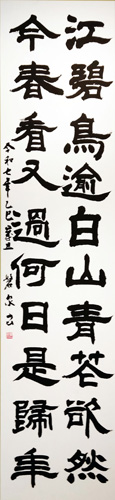 江碧鳥逾白山青花欲然
今春看又過何日是歸年
令和七年乙巳